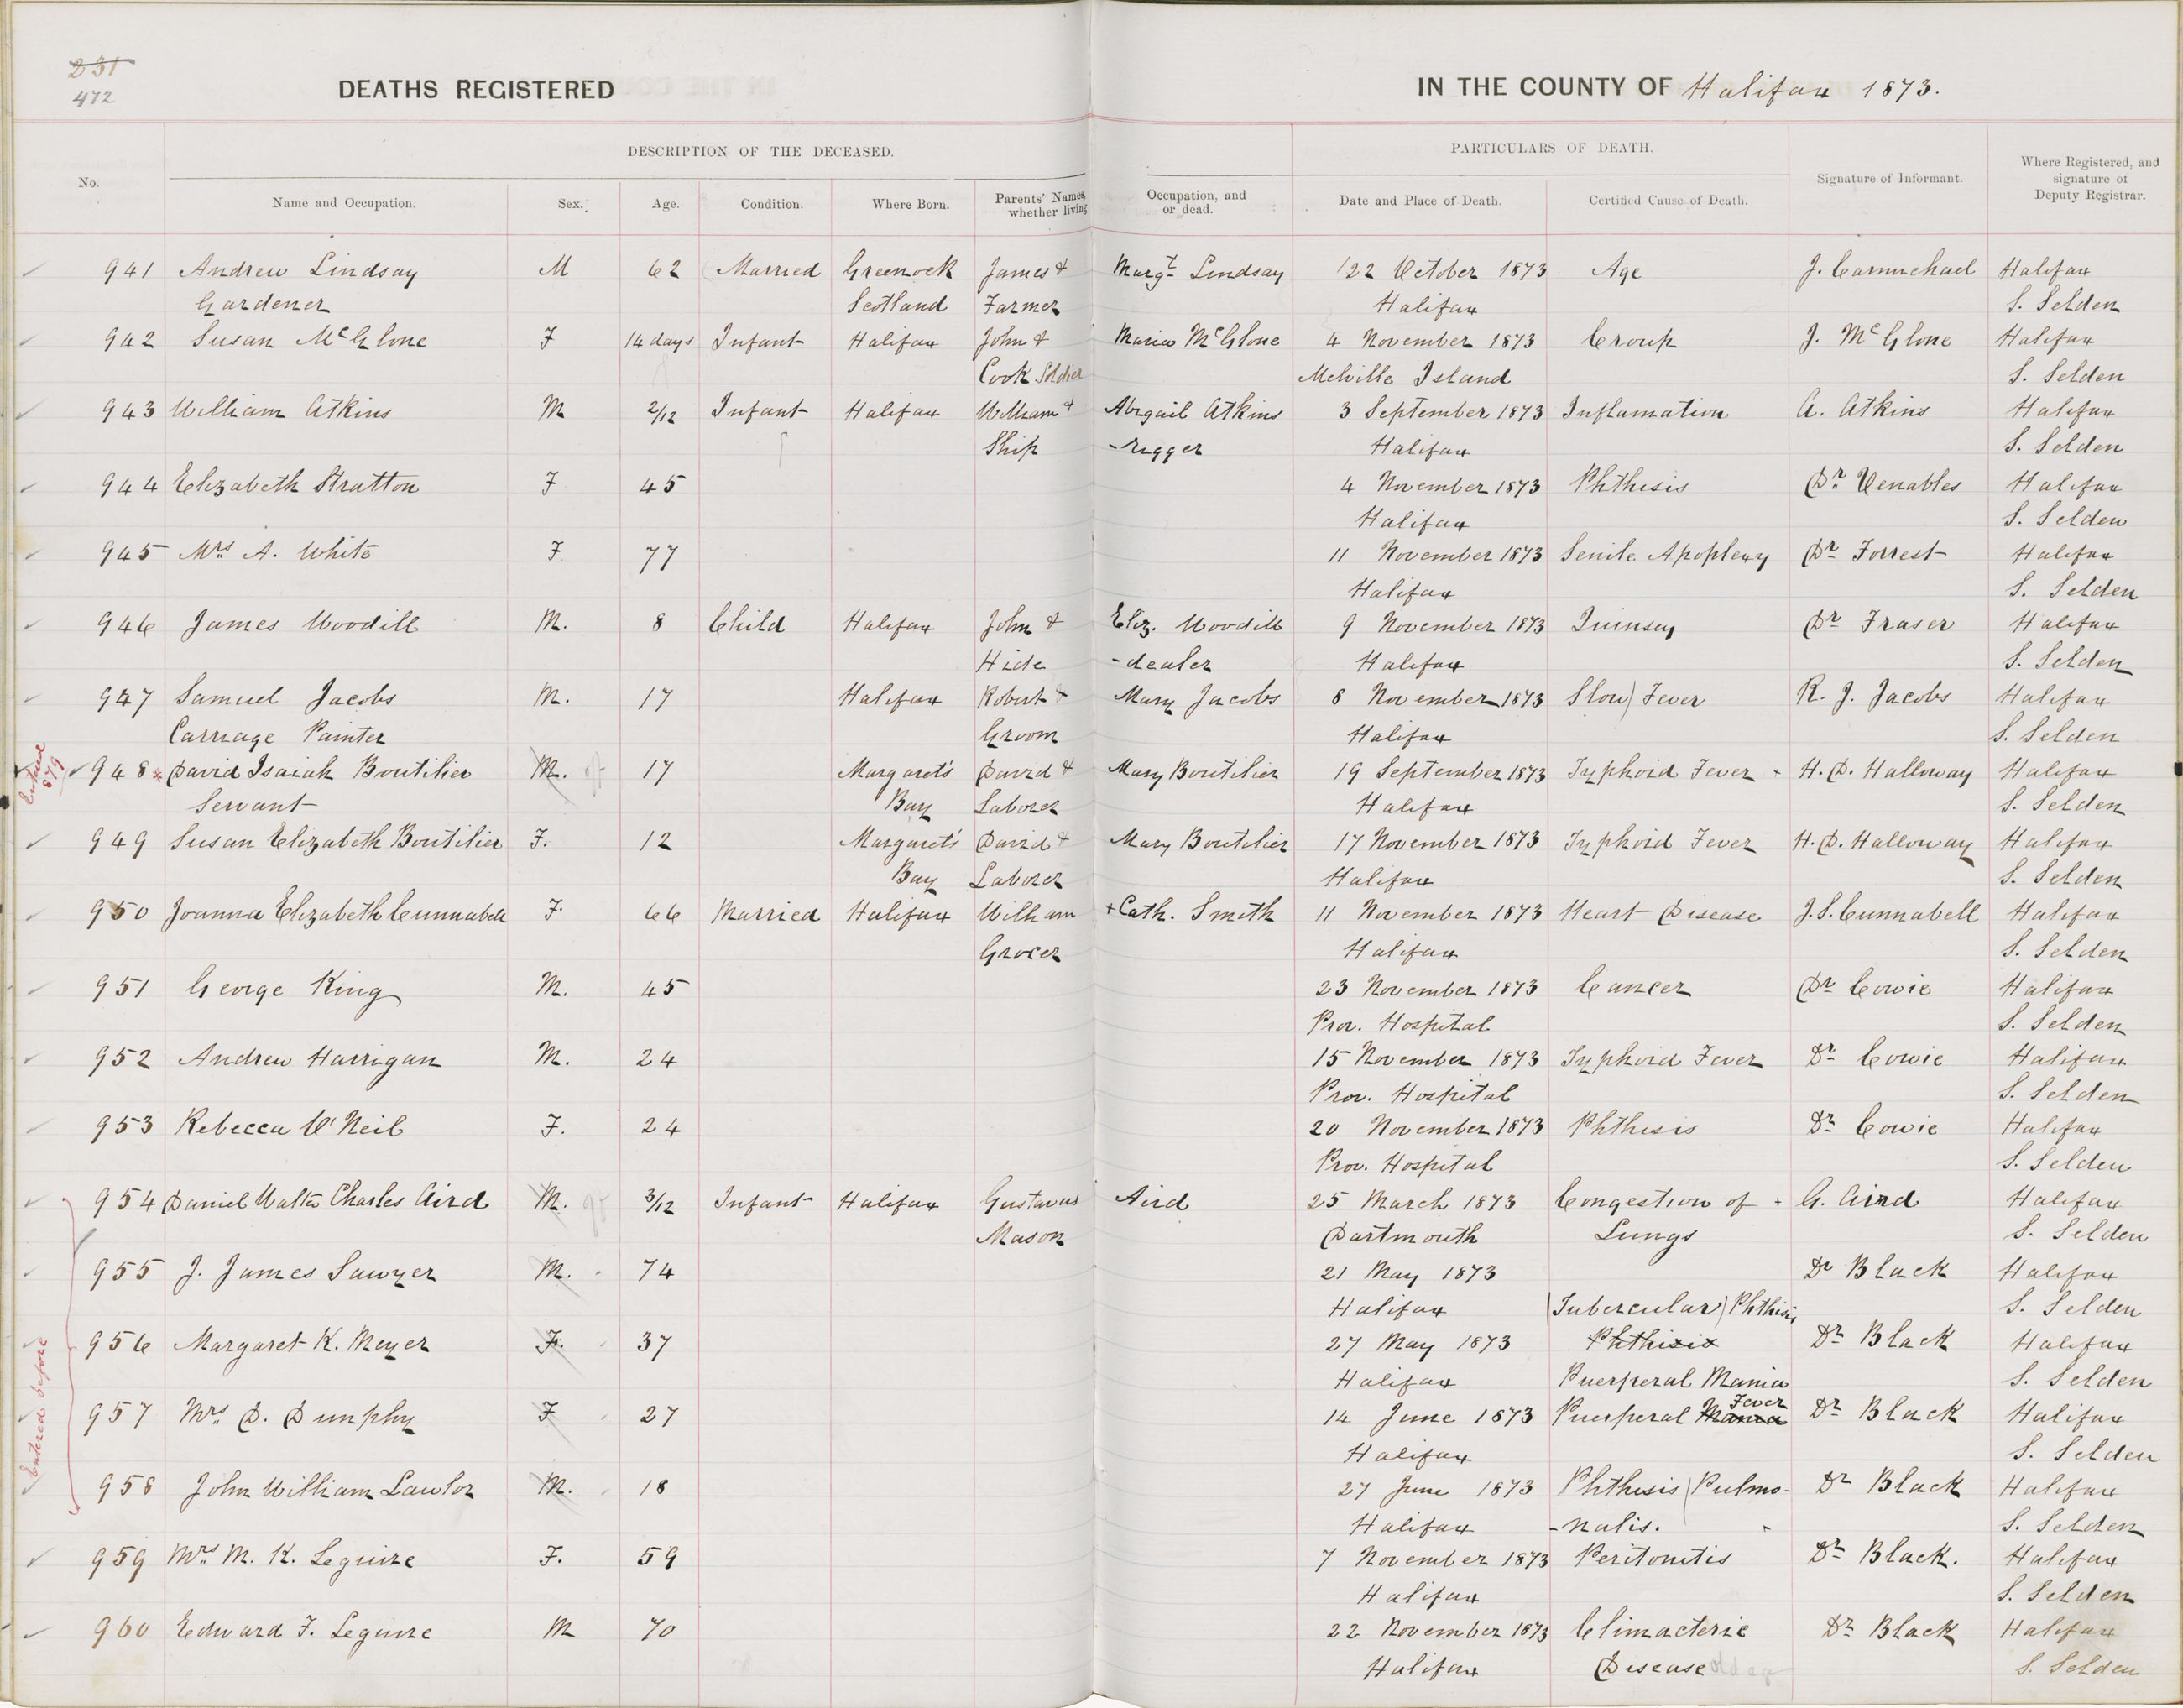 231
472
DEATHS REGISTERED
IN THE COUNTY OF Halifax 1873.
DESCRIPTION OF THE DECEASED.
PARTICULARS OF DEATH.
No.
Name and Occupation.
Sex.
Age.
Condition.
Where Born.
Parents' Names, whether living
Occupation, and or dead.
Date and Place of Death.
Certified Cause of Death.
Signature of Informant.
Where Registered, and signature of Deputy Registrar.
941 Andrew Lindsay M 62 Married Greenock James & Margt Lindsay 22 October 1873 Age J. Carmichael Halifax
Gardener Scotland Farmer Halifax S. Selden
942 Susan McGlone F 14 days Infant Halifax John & Maria McGlone 4 November 1873 Croup J. McGlone Halifax
Cook Soldier Melville Island S. Selden
943 William Atkins M 2/12 Infant Halifax William & Abigail Atkins 3 September 1873 Inflamation A. Atkins Halifax
Ship -rigger Halifax S. Selden
944 Elizabeth Stratton F 45 4 November 1873 Phthisis Dr. Venables Halifax
Halifax S. Selden
945 Mrs A. White F. 77 11 November 1873 Senile Apoplexy Dr Forrest Halifax
Halifax S. Selden
946 James Woodill M. 8 Child Halifax John & Eliz. Woodill 9 November 1873 Quinsey Dr Fraser Halifax
Hide -dealer Halifax S. Selden
947 Samuel Jacobs M. 17 Halifax Robert & Mary Jacobs 8 November 1873 Slow) Fever R. J. Jacobs Halifax
Carriage Painter Groom Halifax S. Selden
Entered 879
948 * David Isaiah Boutilier M. 17 Margaret's David & Mary Boutilier 19 September 1873 Typhoid Fever H. D. Halloway Halifax
Servant Bay Laborer Halifax S. Selden
949 Susan Elizabeth Boutilier F. 12 Margaret's David & Mary Boutilier 17 November 1873 Typhoid Fever H. D. Halloway Halifax
Bay Laborer Halifax S. Selden
950 Joanna Elizabeth Cunnabell F. 66 Married Halifax William + Cath. Smith 11 November 1873 Heart Disease J. S. Cunnabell Halifax
Grocer Halifax S. Selden
951 George King M. 45 23 November 1873 Cancer Dr Cowie Halifax
Prov. Hospital S. Selden
952 Andrew Harrigan M. 24 15 November 1873 Typhoid Fever Dr Cowie Halifax
Prov. Hospital S. Selden
953 Rebecca O'Neil F. 24 20 November 1873 Phthisis Dr Cowie Halifax
Prov. Hospital S. Selden
954 Daniel Walter Charles Aird M. 3/12 Infant Halifax Gustavus Aird 25 March 1873 Congestion of G. Aird Halifax
Mason Dartmouth Lungs S. Selden
Entered before
955 J. James Sawyer M. 74 21 May 1873 Dr Black Halifax
Halifax (Tubercular) Phthisis S. Selden
956 Margaret K. Meyer F. 37 27 May 1873 Phthisis Dr Black Halifax
Halifax Puerperal Mania S. Selden
957 Mrs D. Dunphy F 27 14 June 1873 Puerperal Mania Fever Dr Black Halifax
Halifax S. Selden
958 John William Lawlor M. 18 27 June 1873 Phthisis (Pulmo- Dr Black Halifax
Halifax -nalis. S. Selden
959 Mrs M. K. Leguire F. 59 7 November 1873 Peritonitis Dr Black. Halifax
Halifax S. Selden
960 Edward F. Leguire M 70 22 November 1873 Climacteric Dr Black Halifax
Halifax Disease old age S. Selden